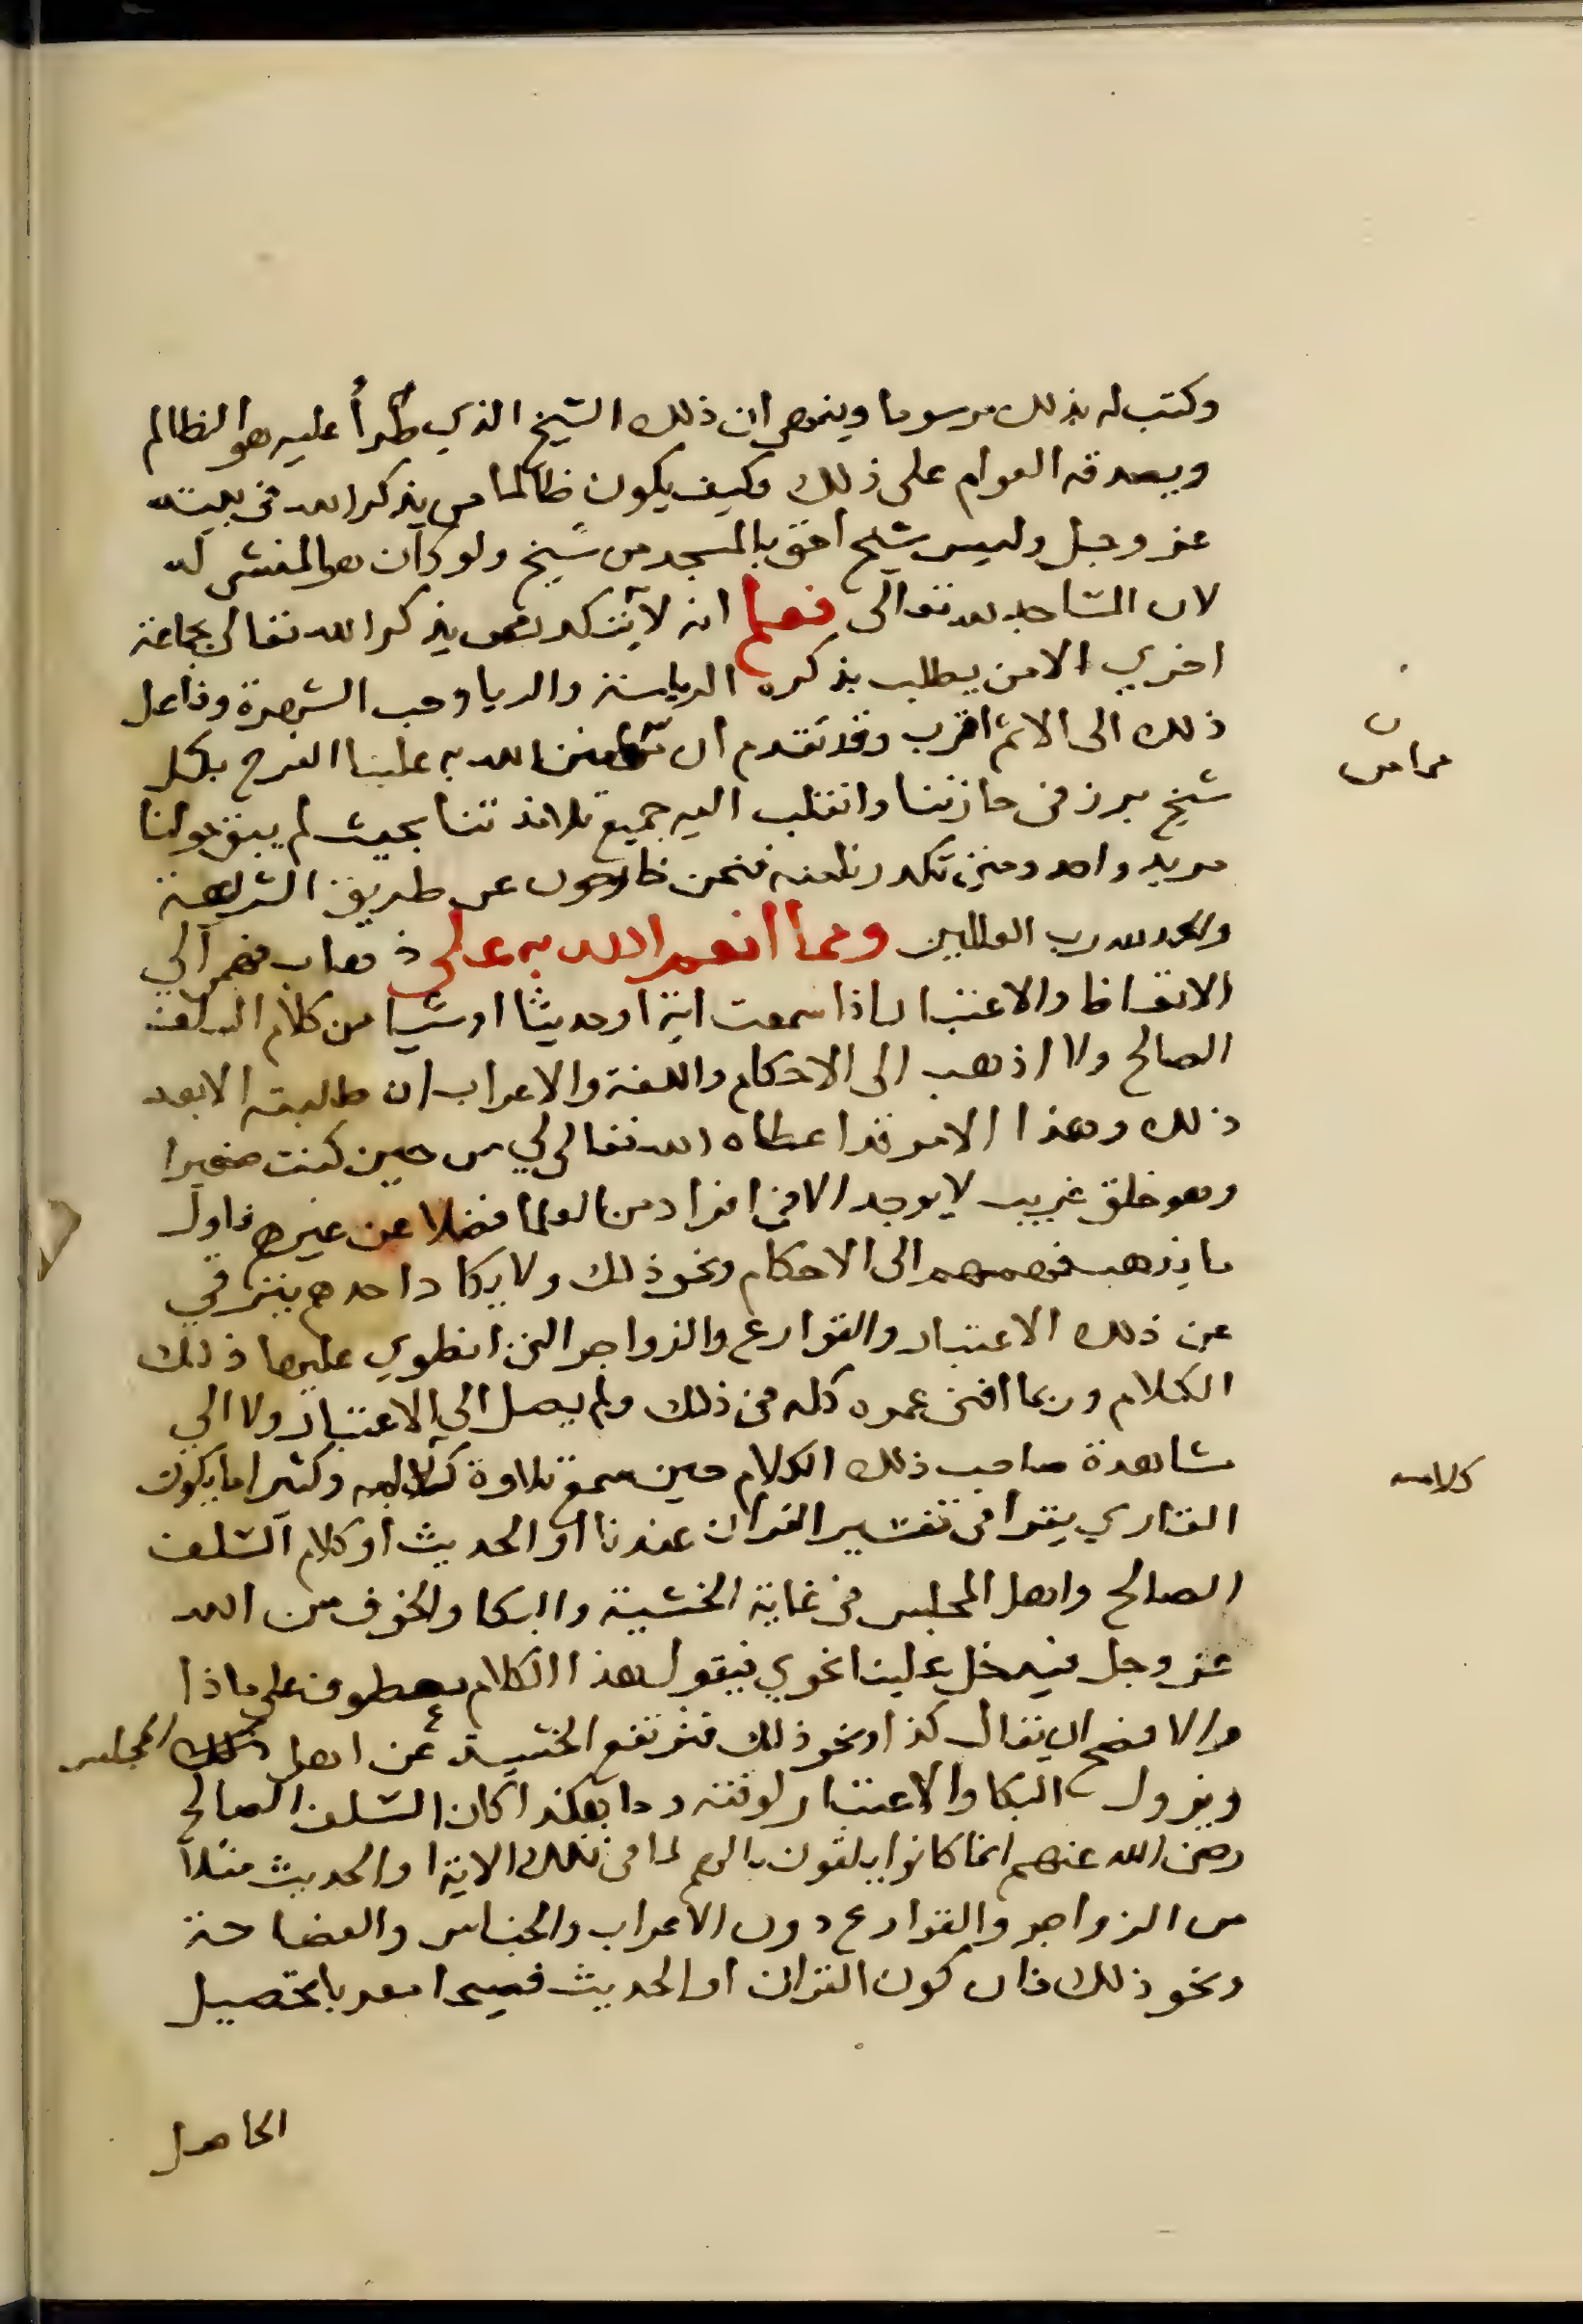 وكتب له بذلك مرسوما وينهى ان ذلك الشيخ الذي طرأ عليه هو الظالم
ويصدقه العوام على ذلك وكيف يكون ظالما من يذكر الله في بيته
عز وجل وليس شيخ احق بالمسجد من شيخ ولو كان هو المنشى له
لان المساجد لله تعالى فعلم انه لا يتكدر ممن يذكر الله تعالى بجماعة
اخري الا من يطلب بذكره الرياسة والريا وحب الشهرة وفاعل
ذلك الى الاثم اقرب وقد تقدم ان مما من الله به علينا الفرح بكل
شيخ برز في حارتنا وانقلب اليه جميع تلامذتنا بحيث لم يبق حولنا
مريد واحد ومتى تكدرنا منه فنحن خارجون عن طريق الشريعة
والحمد لله رب العالمين ومما انعم الله به على ذهاب فهمي الي
الاتعاظ والاعتبار اذا سمعت اية او حديثا او شيا من كلام السلف
الصالح ولا اذهب الى الاحكام واللغة والاعراب ان طلبته الا بعد
ذلك وهذا الامر قد اعطاه الله تعالى لي من حين كنت صغيرا
وهو خلق غريب لا يوجد الا في افراد من العلما فضلا عن غيرهم فاول
ما يذهب فهمهم الى الاحكام ونحو ذلك ولا يكاد احدهم يترقي
عن ذلك الاعتبار والقوارع والزواجر التي انطوي عليها ذلك
الكلام وربما افنى عمره كله في ذلك ولم يصل الي الاعتبار ولا الي
مشاهدة صاحب ذلك الكلام حين سمع تلاوة كلامه وكثيرا ما يكون
القاري يقرا في تفسير القران عندنا او الحديث او كلام السلف
الصالح واهل المجلس في غاية الخشية والبكا والخوف من الله
عز وجل فيدخل علينا نحوي فيقول هذا الكلام معطوف على ماذا
والافصح ان يقال كذا ونحو ذلك فترتفع الخشية عن اهل ذلك المجلس
ويزول البكا والاعتبار لوقته وما هكذا كان السلف الصالح
رضى الله عنهم انما كانوا يلقون بالهم لما في تلك الاية او الحديث مثلا
من الزواجر والقوارع دون الاعراب والجناس والفصاحة
ونحو ذلك فان كون القران او الحديث فصيحا معربا تحصيل
الحاصل
كلامه